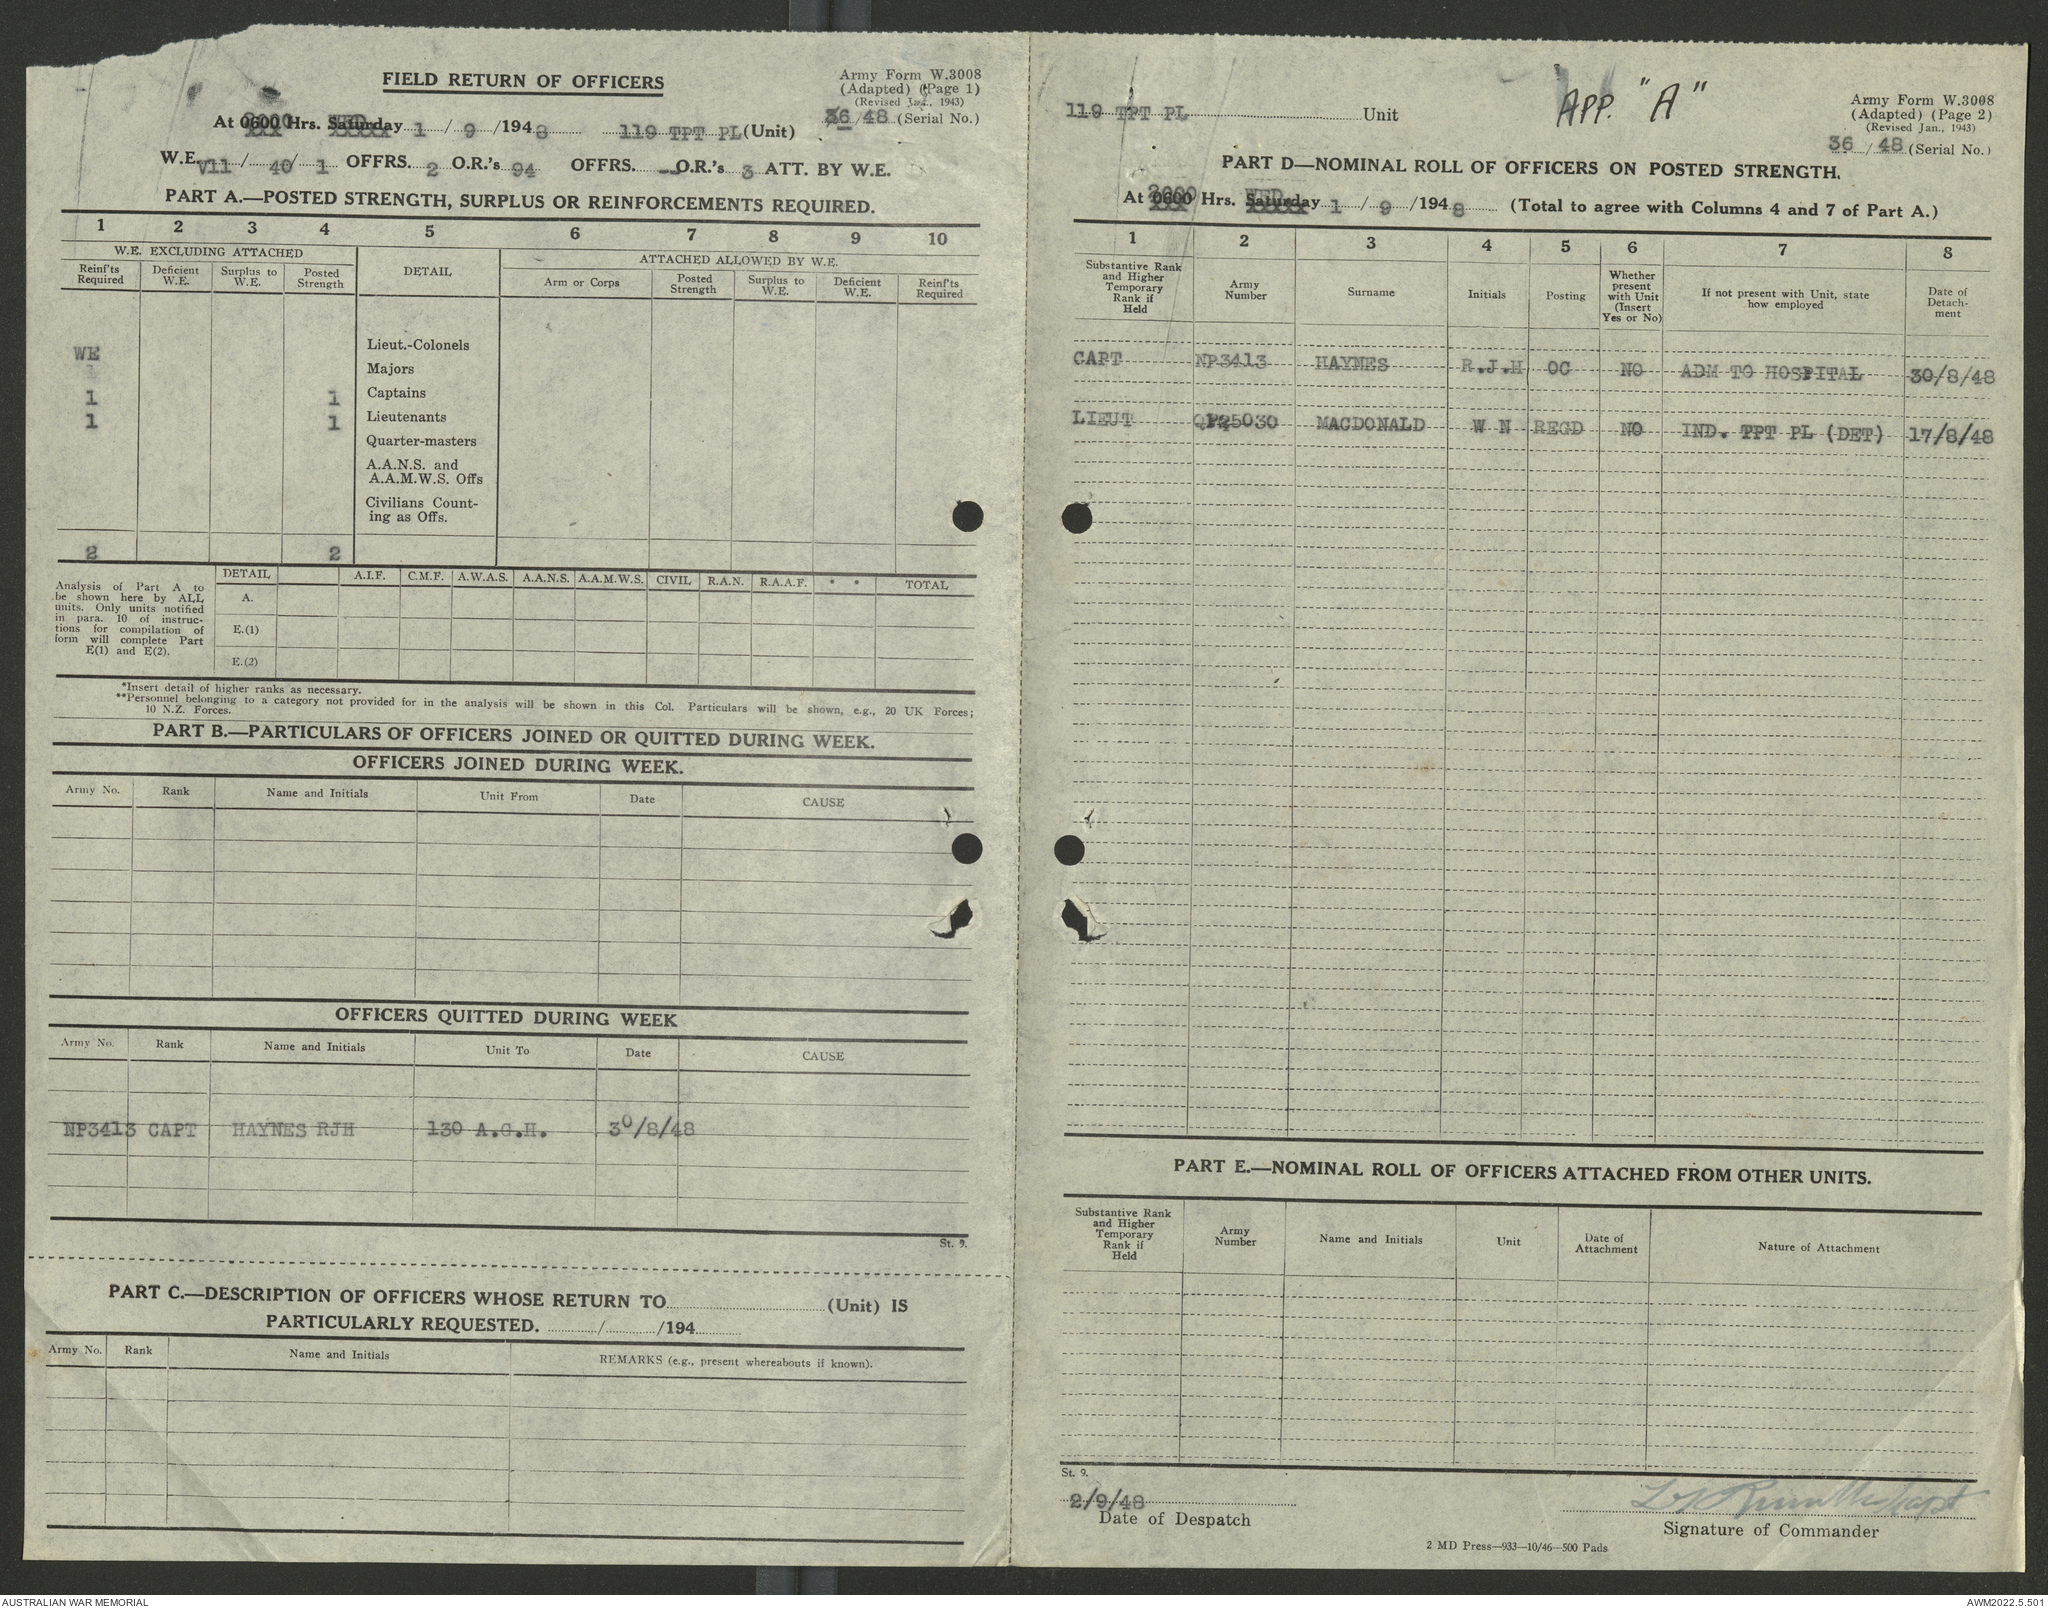 FIELD RETURN OF OFFICERS
Army Form W.3008
(Adapted) (Page 1)
(Revised Jan., 1943)
36/48 (Serial No.)
At 0600 Hrs. Saturday 1/9/1948 119 TPT PL (Unit)
W.E. V11/40/1 OFFRS. 2 O.R.'s 94 OFFRS. -- O.R.'s 3 ATT. BY W.E.
PART A.—POSTED STRENGTH, SURPLUS OR REINFORCEMENTS REQUIRED.
1 2 3 4 5 6 7 8 9 10
W.E. EXCLUDING ATTACHED
DETAIL
ATTACHED ALLOWED BY W.E.
Reinf'ts Required
Deficient W.E.
Surplus to W.E.
Posted Strength
Arm or Corps
Posted Strength
Surplus to W.E.
Deficient W.E.
Reinf'ts Required
Lieut.-Colonels
WE
Majors
1 1 Captains
1 1 Lieutenants
Quarter-masters
A.A.N.S. and
A.A.M.W.S. Offs
Civilians Count-
ing as Offs.
2 2
Analysis of Part A to
be shown here by ALL
units. Only units notified
in para. 10 of instruc-
tions for compilation of
form will complete Part
E(1) and E(2).
DETAIL A.I.F. C.M.F. A.W.A.S. A.A.N.S. A.A.M.W.S. CIVIL R.A.N. R.A.A.F. * * TOTAL
A.
E.(1)
E.(2)
*Insert detail of higher ranks as necessary.
**Personnel belonging to a category not provided for in the analysis will be shown in this Col. Particulars will be shown, e.g., 20 UK Forces;
10 N.Z. Forces.
PART B.—PARTICULARS OF OFFICERS JOINED OR QUITTED DURING WEEK.
OFFICERS JOINED DURING WEEK.
Army No. Rank Name and Initials Unit From Date CAUSE
OFFICERS QUITTED DURING WEEK
Army No. Rank Name and Initials Unit To Date CAUSE
NP3413 CAPT HAYNES RJH 130 A.G.H. 30/8/48
St. 9.
PART C.—DESCRIPTION OF OFFICERS WHOSE RETURN TO (Unit) IS
PARTICULARLY REQUESTED. / /194
Army No. Rank Name and Initials REMARKS (e.g., present whereabouts if known).
119 TPT PL Unit
APP. "A"
Army Form W.3008
(Adapted) (Page 2)
(Revised Jan., 1943)
36/48 (Serial No.)
PART D—NOMINAL ROLL OF OFFICERS ON POSTED STRENGTH.
At 0600 Hrs. WED Saturday 1/9/1948 (Total to agree with Columns 4 and 7 of Part A.)
1 2 3 4 5 6 7 8
Substantive Rank
and Higher
Temporary
Rank if
Held
Army
Number
Surname
Initials
Posting
Whether
present
with Unit
(Insert
Yes or No)
If not present with Unit, state
how employed
Date of
Detach-
ment
CAPT NP3413 HAYNES R.J.H OC NO ADM TO HOSPITAL 30/8/48
LIEUT MACDONALD W N REGD NO IND. TPT PL (DET) 17/8/48
PART E.—NOMINAL ROLL OF OFFICERS ATTACHED FROM OTHER UNITS.
Substantive Rank
and Higher
Temporary
Rank if
Held
Army
Number
Name and Initials
Unit
Date of
Attachment
Nature of Attachment
St. 9.
2/9/48
Date of Despatch
Capt
Signature of Commander
2 MD Press—933—10/46—500 Pads
AUSTRALIAN WAR MEMORIAL
AWM2022.5.501